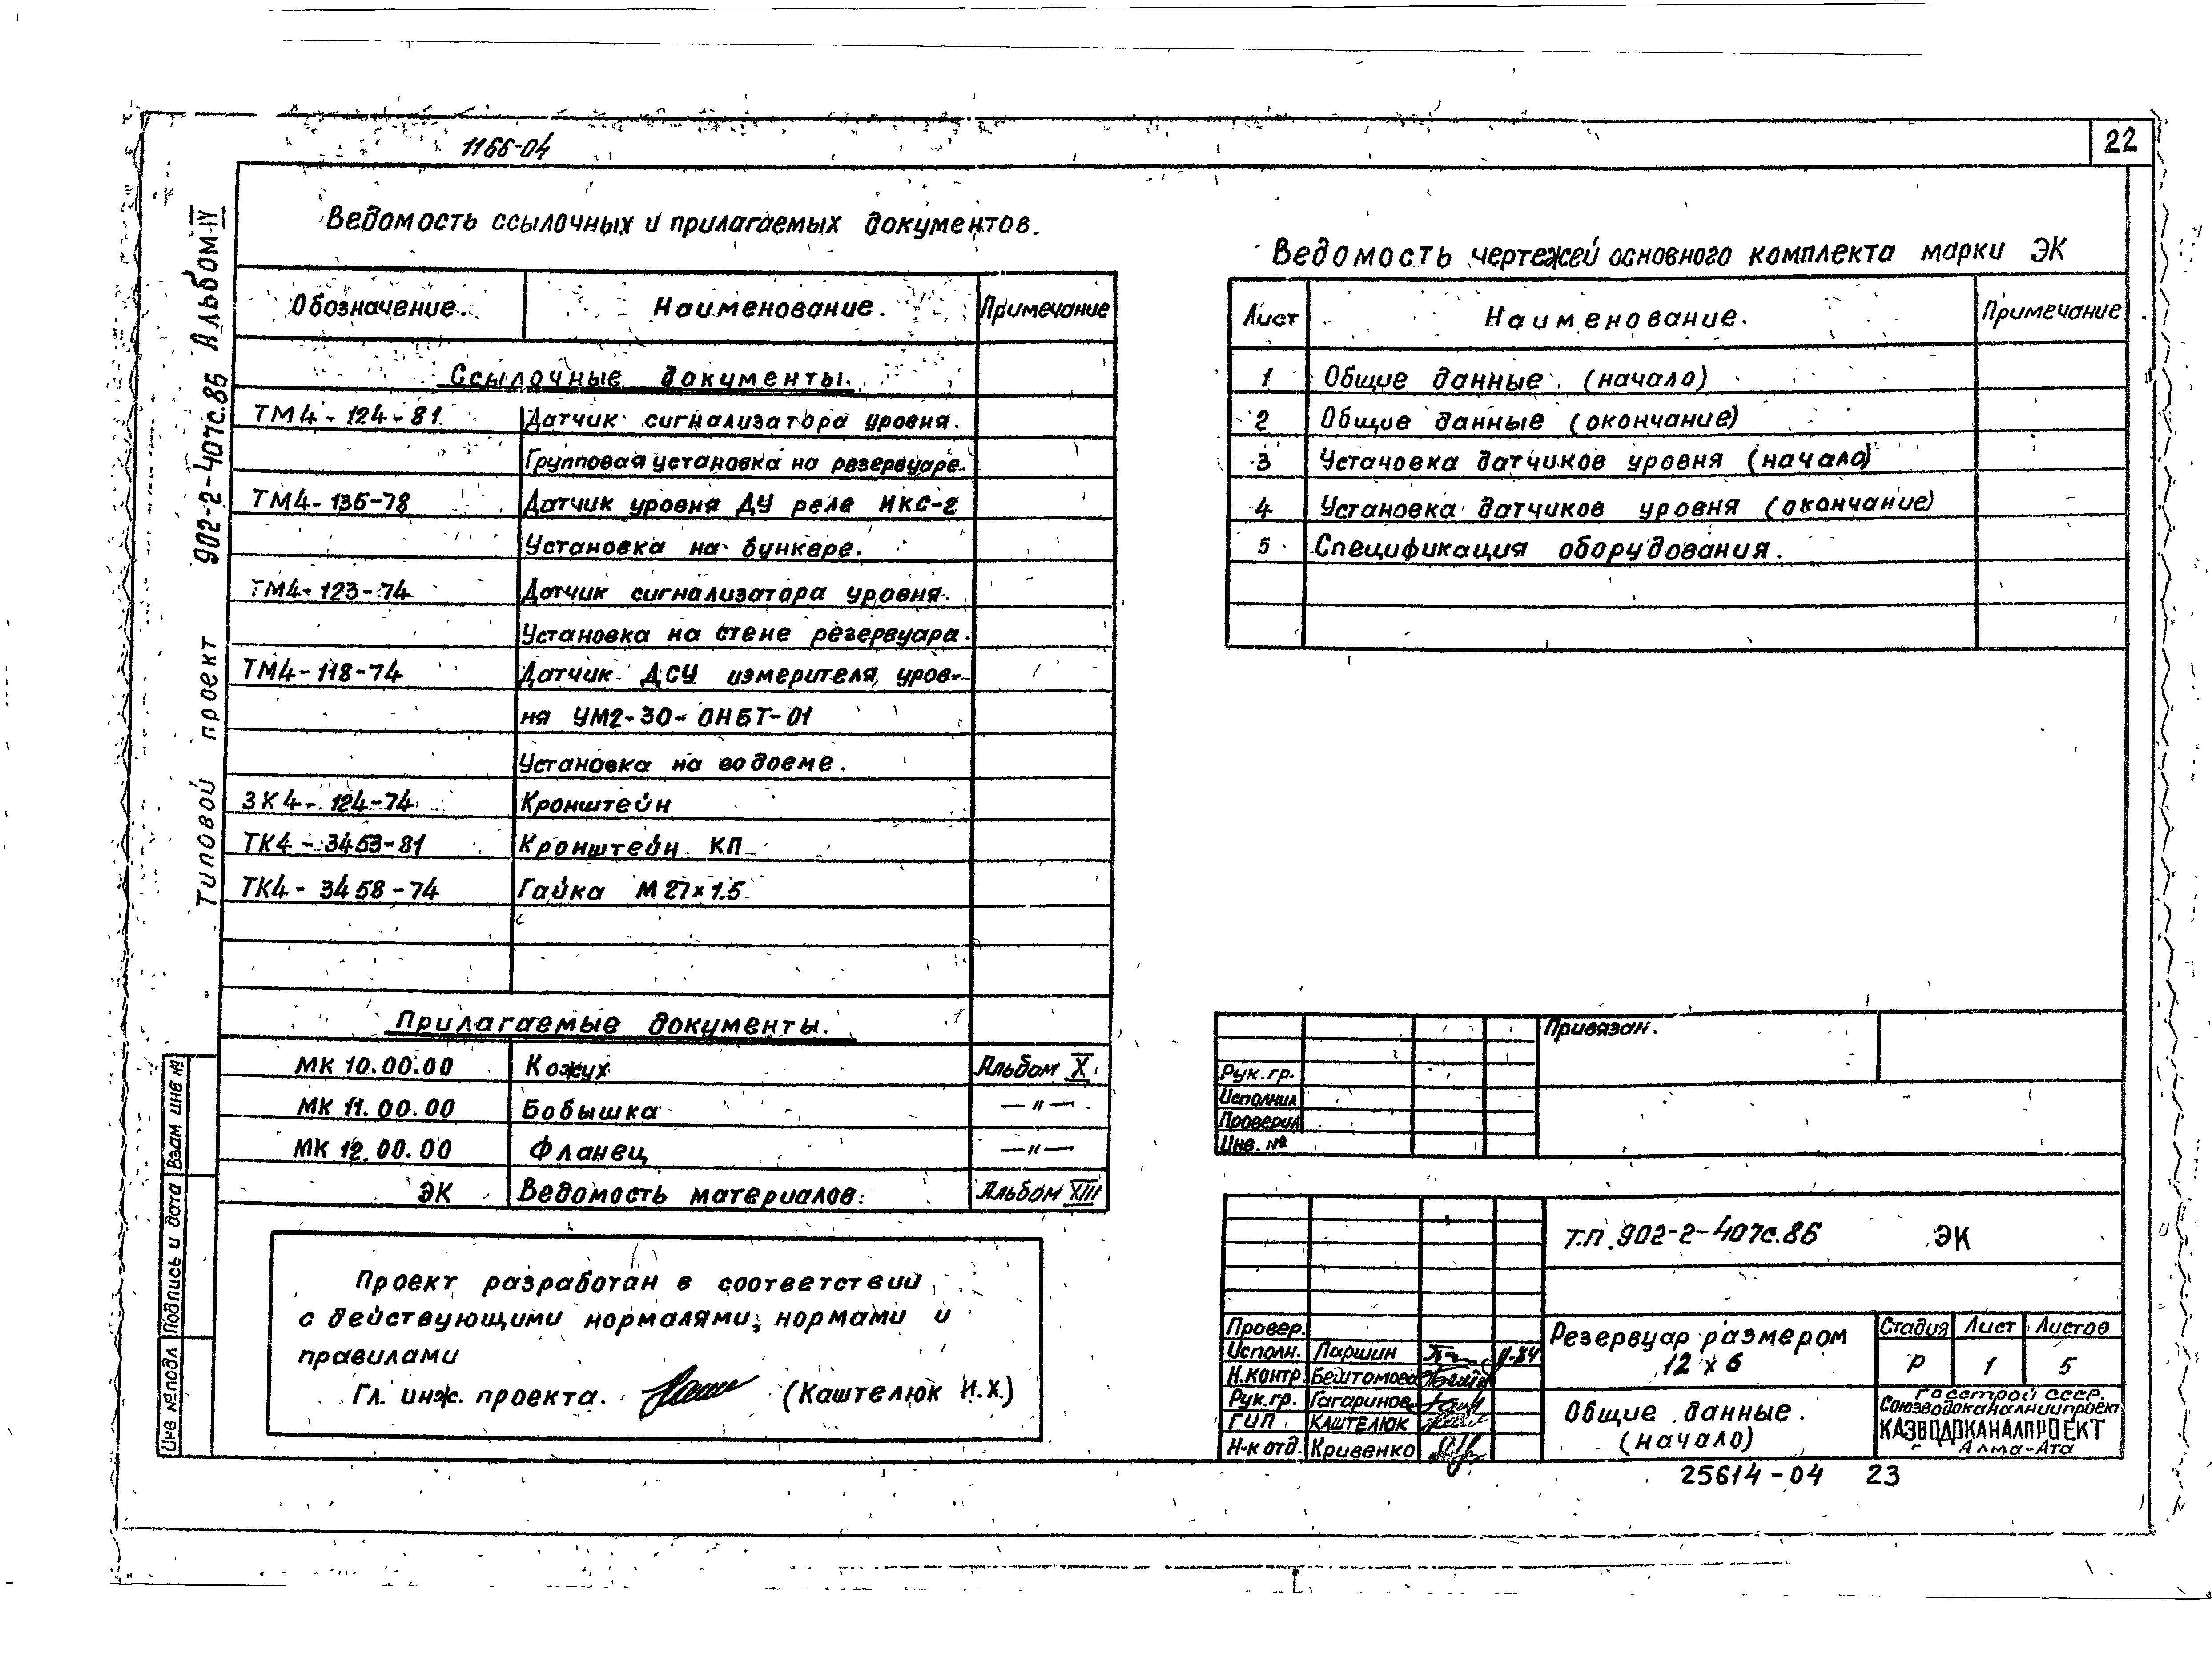 1166-04
22
Типовой проект 902-2-407с.86 Альбом IV
Ведомость ссылочных и прилагаемых документов.
Обозначение. Наименование. Примечание
Ссылочные документы.
ТМ4-124-81 Датчик сигнализатора уровня.
Групповая установка на резервуаре.
ТМ4-136-78 Датчик уровня ДУ реле ИКС-2
Установка на бункере.
ТМ4-123-74 Датчик сигнализатора уровня.
Установка на стене резервуара.
ТМ4-118-74 Датчик ДСУ измерителя уров-
ня УМ2-30-ОНБТ-01
Установка на водоеме.
ЗК4-124-74 Кронштейн
ТК4-3453-81 Кронштейн КП
ТК4-3458-74 Гайка М27×1.5
Прилагаемые документы.
МК 10.00.00 Кожух Альбом X
МК 11.00.00 Бобышка —"—
МК 12.00.00 Фланец —"—
ЭК Ведомость материалов. Альбом XIII
Проект разработан в соответствии
с действующими нормалями, нормами и
правилами
Гл. инж. проекта. (Каштелюк И.Х.)
Ведомость чертежей основного комплекта марки ЭК
Лист Наименование. Примечание
1 Общие данные (начало)
2 Общие данные (окончание)
3 Установка датчиков уровня (начало)
4 Установка датчиков уровня (окончание)
5 Спецификация оборудования.
Привязан.
Рук.гр.
Исполнил
Проверил
Инв. №
Т.П. 902-2-407с.86 ЭК
Провер.
Исполн. Паршин
Н.контр. Бештомова
Рук.гр. Гагаринов
ГИП КАШТЕЛЮК
Н-к отд. Кривенко
Резервуар размером
12 х 6
Стадия Лист Листов
Р 1 5
Общие данные.
(начало)
Госстрой СССР.
Союзводоканалниипроект
КАЗВОДОКАНАЛПРОЕКТ
г Алма-Ата
25614-04 23
Инв № подл Подпись и дата Взам инв №